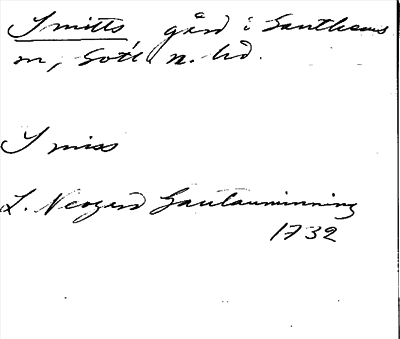 Smitts, gård i Ganthems
sn, Gotl. n. hd.
Smiss
L. Neogard Gautauminning
1732